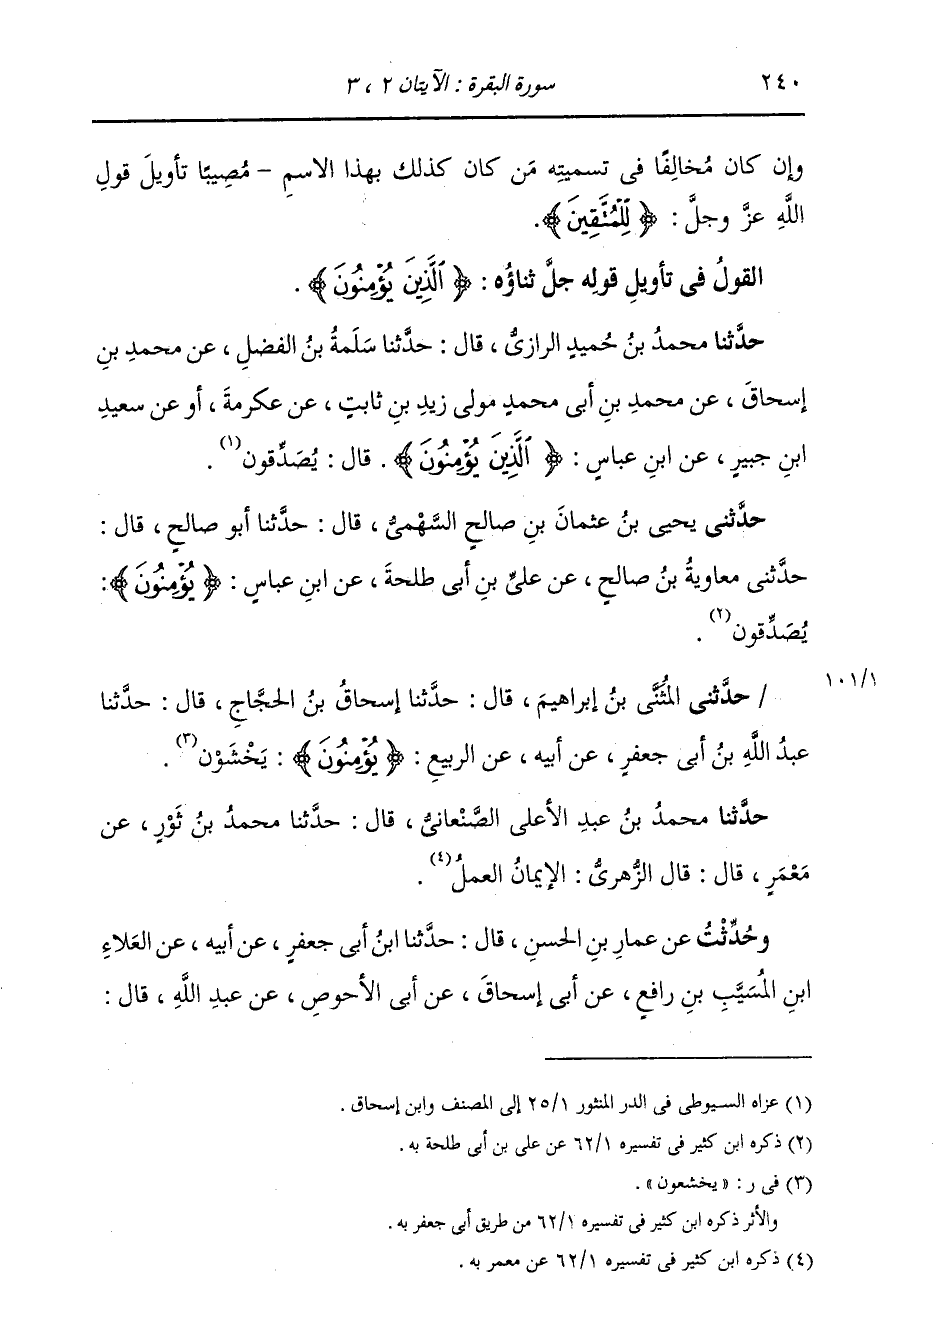 ٢٤٠ سورة البقرة : الآيتان ٢ ، ٣
وإن كان مُخالِفًا فى تسميتِه مَن كان كذلك بهذا الاسمِ – مُصِيبًا تأويلَ قولِ
اللَّهِ عزَّ وجلَّ : ﴿ لِّلْمُتَّقِينَ ﴾.
القولُ فى تأويلِ قولِه جلَّ ثناؤُه : ﴿ ٱلَّذِينَ يُؤْمِنُونَ ﴾ .
حدَّثنا محمدُ بنُ حُميدٍ الرازىُّ ، قال : حدَّثنا سَلَمةُ بنُ الفضلِ ، عن محمدِ بنِ
إسحاقَ ، عن محمدِ بنِ أبى محمدٍ مولى زيدِ بنِ ثابتٍ ، عن عكرمةَ ، أو عن سعيدِ
ابنِ جبيرٍ ، عن ابنِ عباسٍ : ﴿ ٱلَّذِينَ يُؤْمِنُونَ ﴾ . قال : يُصَدِّقون(١) .
حدَّثنى يحيى بنُ عثمانَ بنِ صالحٍ السَّهْمىُّ ، قال : حدَّثنا أبو صالحٍ ، قال :
حدَّثنى معاويةُ بنُ صالحٍ ، عن علىِّ بنِ أبى طلحةَ ، عن ابنِ عباسٍ : ﴿ يُؤْمِنُونَ ﴾:
يُصَدِّقون(٢) .
١٠١/١ / حدَّثنى المُثَنَّى بنُ إبراهيمَ ، قال : حدَّثنا إسحاقُ بنُ الحجَّاجِ ، قال : حدَّثنا
عبدُ اللَّهِ بنُ أبى جعفرٍ ، عن أبيه ، عن الربيعِ : ﴿ يُؤْمِنُونَ ﴾ : يَخْشَوْن(٣) .
حدَّثنا محمدُ بنُ عبدِ الأعلى الصَّنْعانىُّ ، قال : حدَّثنا محمدُ بنُ ثَوْرٍ ، عن
مَعْمَرٍ ، قال : قال الزُّهرىُّ : الإيمانُ العملُ(٤) .
وحُدِّثْتُ عن عمارِ بنِ الحسنِ ، قال : حدَّثنا ابنُ أبى جعفرٍ ، عن أبيه ، عن العَلاءِ
ابنِ المُسَيَّبِ بنِ رافعٍ ، عن أبى إسحاقَ ، عن أبى الأحوصِ ، عن عبدِ اللَّهِ ، قال :
(١) عزاه السيوطى فى الدر المنثور ٢٥/١ إلى المصنف وابن إسحاق .
(٢) ذكره ابن كثير فى تفسيره ٦٢/١ عن على بن أبى طلحة به .
(٣) فى ر : « يخشعون » .
والأثر ذكره ابن كثير فى تفسيره ٦٢/١ من طريق أبى جعفر به .
(٤) ذكره ابن كثير فى تفسيره ٦٢/١ عن معمر به .